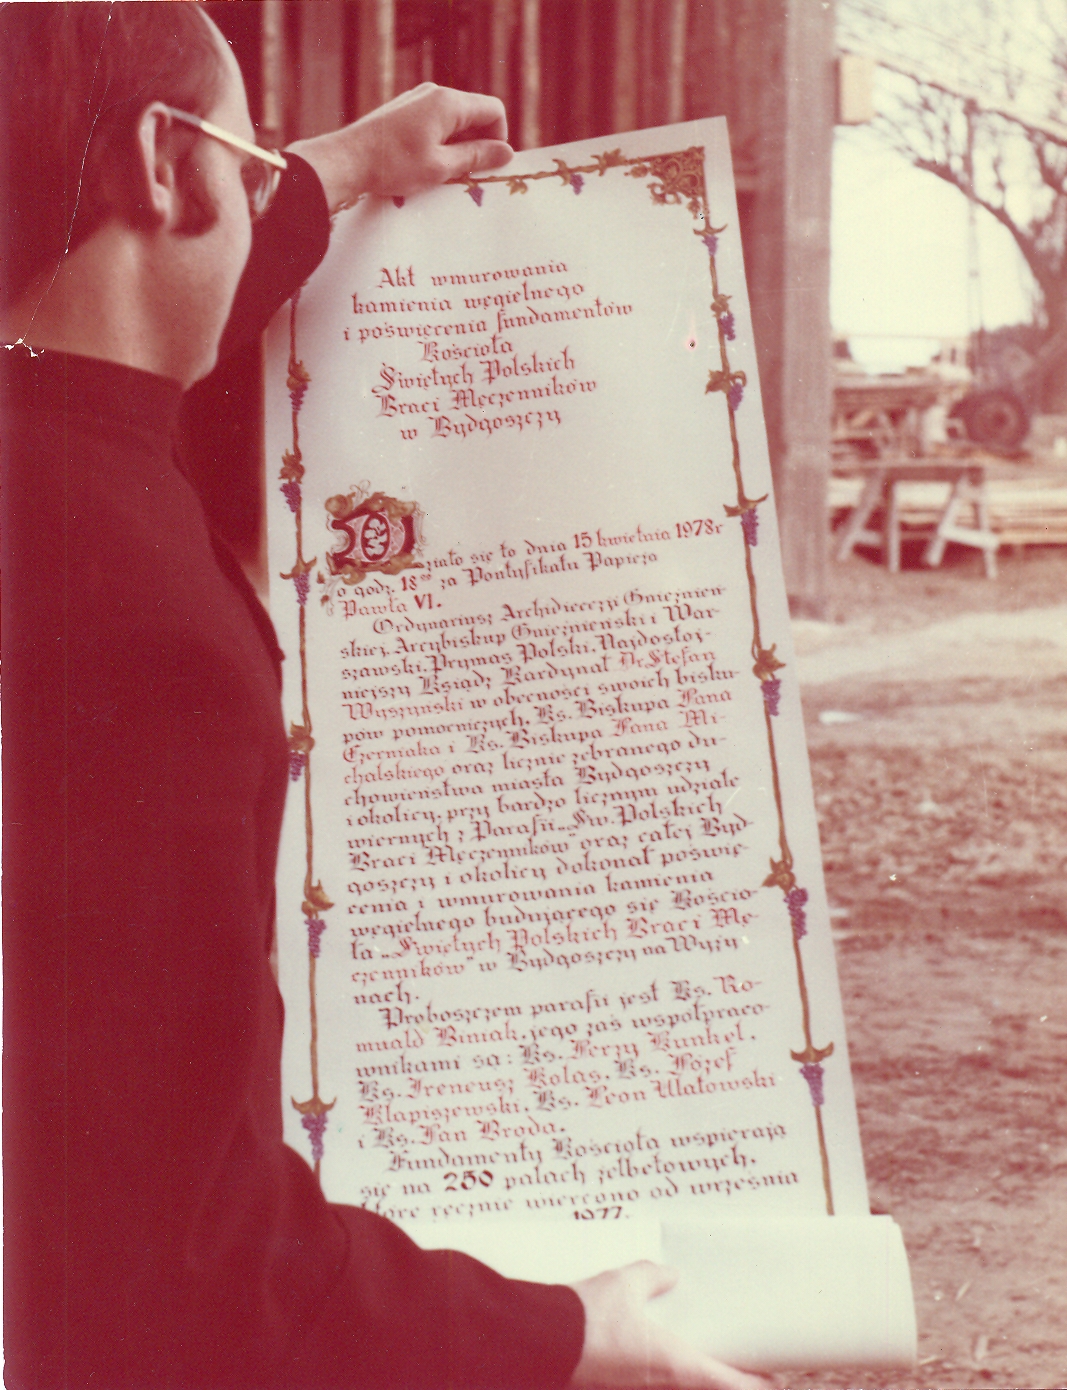 Akt wmurowania
kamienia węgielnego
i poświęcenia fundamentów
Kościoła
Świętych Polskich
Braci Męczenników
w Bydgoszczy
Działo się to dnia 15 kwietnia 1978r
o godz. 18°° za Pontyfikatu Papieża
Pawła VI.
Ordynariusz Archidiecezji Gnieźnień
skiej, Arcybiskup Gnieźnieński i War-
szawski, Prymas Polski, Najdostoj-
niejszy Ksiądz Kardynał Dr. Stefan
Wyszyński w obecności swoich bisku-
pów pomocniczych, Ks. Biskupa Jana
Czerniaka i Ks. Biskupa Jana Mi-
chalskiego oraz licznie zebranego du-
chowieństwa miasta Bydgoszczy
i okolicy, przy bardzo licznym udziale
wiernych z Parafii „Św. Polskich
Braci Męczenników" oraz całej Byd-
goszczy i okolicy dokonał poświę-
cenia i wmurowania kamienia
węgielnego budującego się Kościo-
ła „Świętych Polskich Braci Mę-
czenników" w Bydgoszczy na Wyży-
nach.
Proboszczem parafii jest Ks. Ro-
muald Biniak, jego zaś współpraco-
wnikami są: Ks. Jerzy Kunkel,
Ks. Ireneusz Kolas, Ks. Józef
Klapiszewski, Ks. Leon Ulatowski
i Ks. Jan Broda.
Fundamenty Kościoła wspierają
się na 250 palach żelbetowych,
które ręcznie wiercono od września
1977.